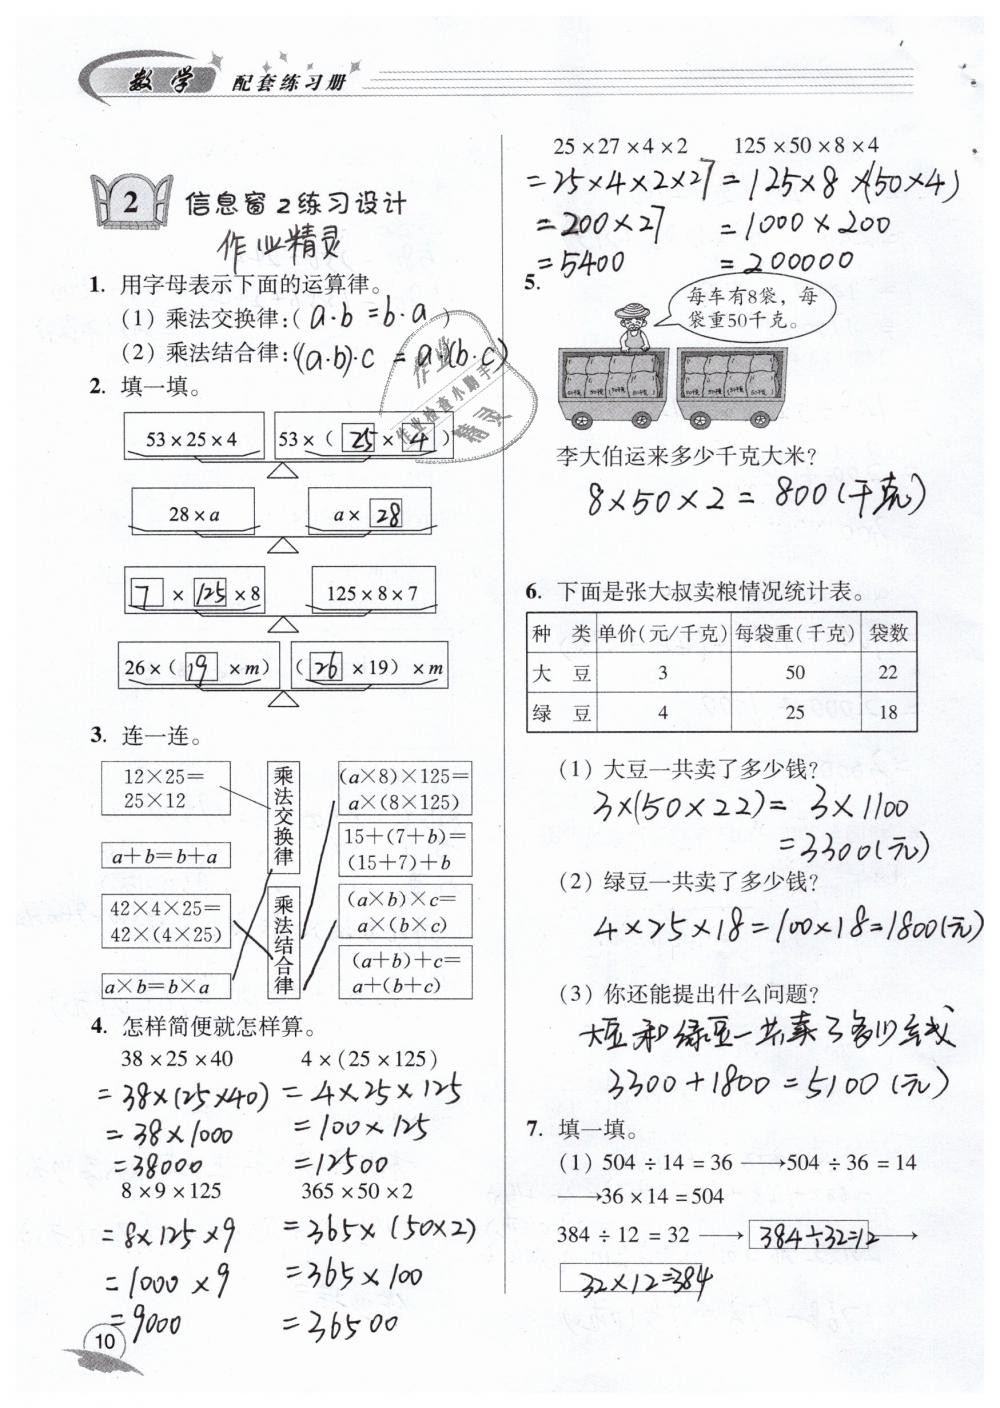 数学 配套练习册
2 信息窗2练习设计
作业精灵
1. 用字母表示下面的运算律。
(1) 乘法交换律:( a·b = b·a )
(2) 乘法结合律:( (a·b)·c = a·(b·c) )
2. 填一填。
53×25×4 53×( 25 × 4 )
28×a a× 28
7 × 125 ×8 125×8×7
26×( 19 ×m) ( 26 ×19)×m
3. 连一连。
12×25=
25×12
a+b=b+a
42×4×25=
42×(4×25)
a×b=b×a
乘法交换律
乘法结合律
(a×8)×125=
a×(8×125)
15+(7+b)=
(15+7)+b
(a×b)×c=
a×(b×c)
(a+b)+c=
a+(b+c)
4. 怎样简便就怎样算。
38×25×40 4×(25×125)
=38×(25×40) =4×25×125
=38×1000 =100×125
=38000 =12500
8×9×125 365×50×2
=8×125×9 =365×(50×2)
=1000×9 =365×100
=9000 =36500
10
25×27×4×2 125×50×8×4
=25×4×2×27 =125×8×(50×4)
=200×27 =1000×200
=5400 =200000
5.
每车有8袋，每
袋重50千克。
李大伯运来多少千克大米?
8×50×2=800(千克)
6. 下面是张大叔卖粮情况统计表。
种 类 单价(元/千克) 每袋重(千克) 袋数
大 豆 3 50 22
绿 豆 4 25 18
(1) 大豆一共卖了多少钱?
3×(50×22)=3×1100
=3300(元)
(2) 绿豆一共卖了多少钱?
4×25×18=100×18=1800(元)
(3) 你还能提出什么问题?
大豆和绿豆一共卖了多少钱
3300+1800=5100(元)
7. 填一填。
(1) 504÷14=36 → 504÷36=14
→36×14=504
384÷12=32 → 384÷32=12 →
32×12=384
作业
作业检查小助手
精灵